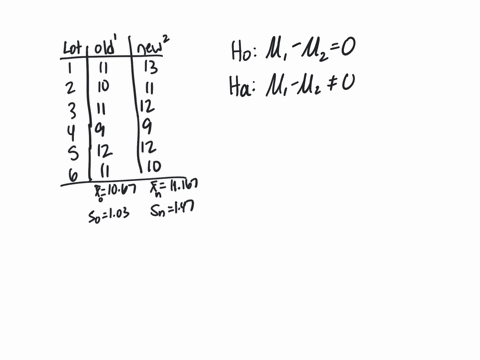 Lot old¹ new²
1 11 13
2 10 11
3 11 12
4 9 9
5 12 12
6 11 10
x̄ₒ=10.67 x̄ₙ=11.167
Sₒ=1.03 Sₙ=1.47
Ho: μ₁-μ₂=0
Ha: μ₁-μ₂≠0